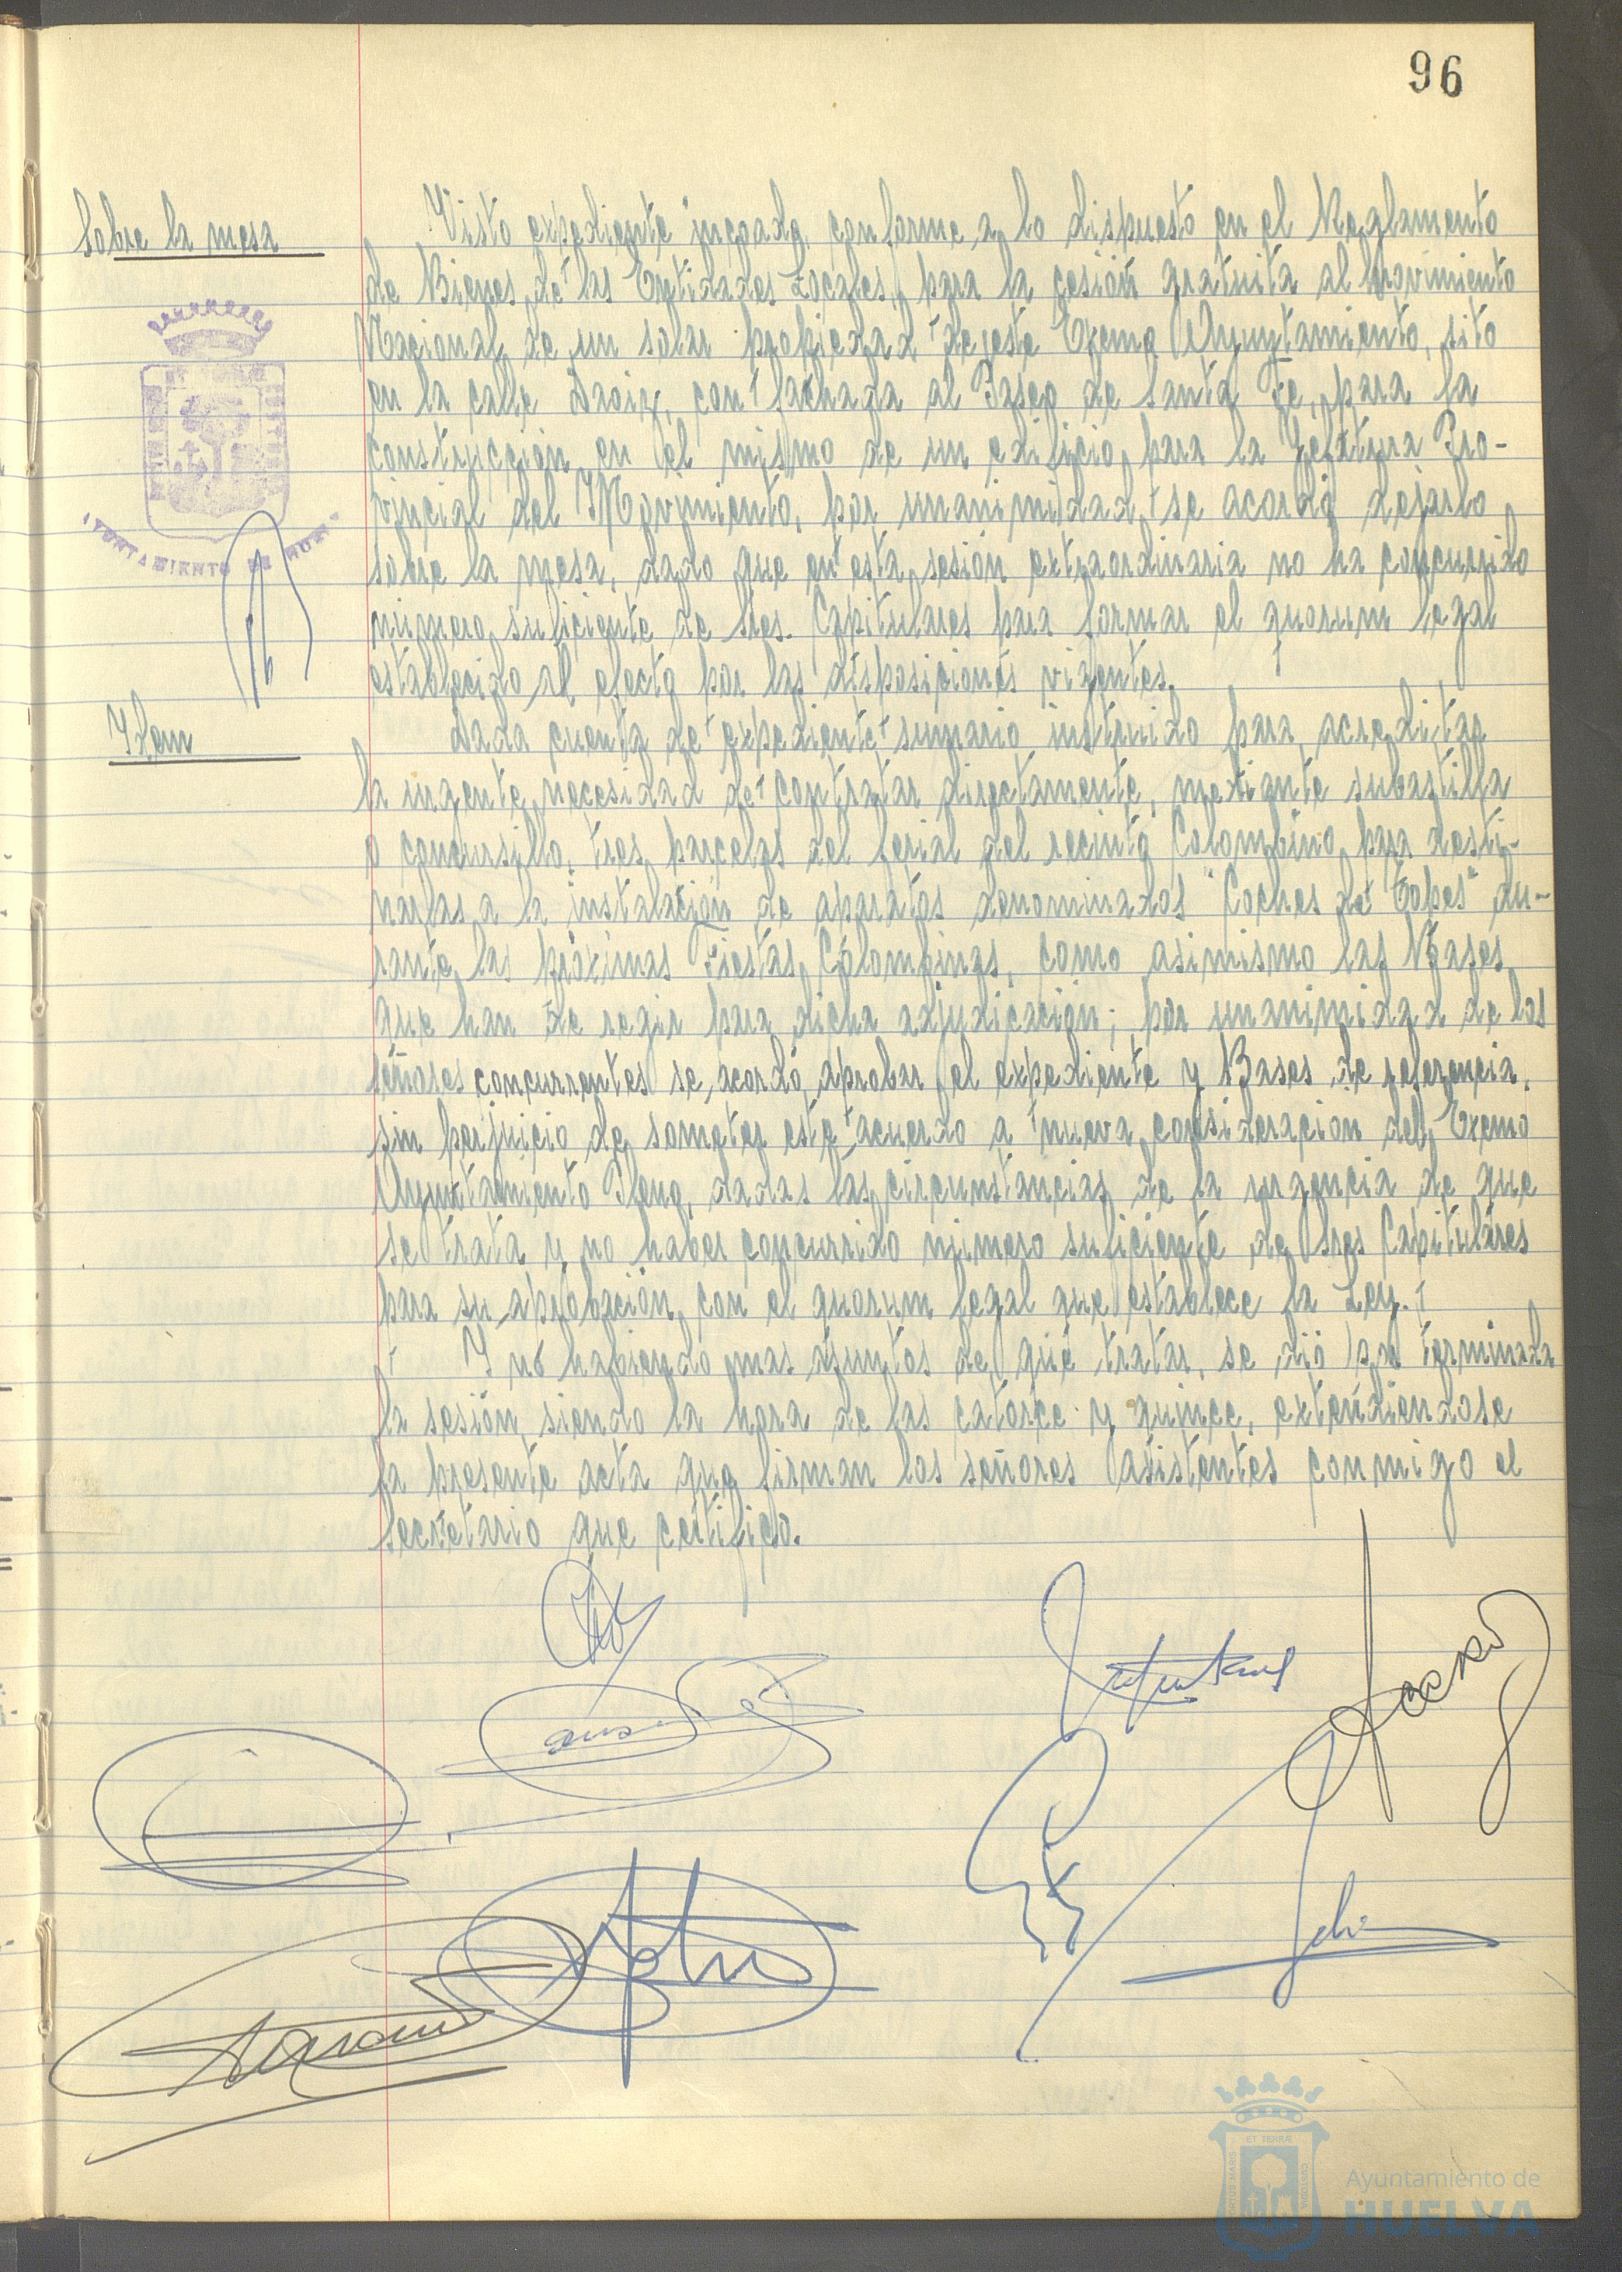 96
Sobre la mesa
Visto expediente incoado, conforme a lo dispuesto en el Reglamento
de Bienes de las Entidades Locales, para la cesión gratuita al Movimiento
Nacional de un solar propiedad de este Excmo Ayuntamiento, sito
en la calle Daoiz, con fachada al Paseo de Santa Fe, para la
construcción en el mismo de un edificio para la Jefatura Pro-
vincial del Movimiento, por unanimidad se acordó dejarlo
sobre la mesa, dado que en esta sesión extraordinaria no ha concurrido
número suficiente de Sres. Capitulares para formar el quorum legal
establecido al efecto por las disposiciones vigentes.
Idem
Dada cuenta de expediente sumario instruido para acreditar
la urgente necesidad de contratar directamente, mediante subastilla
o concursillo, tres parcelas del ferial del recinto Colombino para desti-
narlas a la instalación de aparatos denominados "Coches de Topes" du-
rante las próximas Fiestas Colombinas, como asimismo las Bases
que han de regir para dicha adjudicación; por unanimidad de los
señores concurrentes se acordó aprobar el expediente y Bases de referencia,
sin perjuicio de someter este acuerdo a nueva consideración del Excmo
Ayuntamiento Pleno, dadas las circunstancias de la urgencia de que
se trata y no haber concurrido número suficiente de Sres Capitulares
para su aprobación con el quorum legal que establece la Ley.
Y no habiendo mas asuntos de que tratar, se dió por terminada
la sesión siendo la hora de las catorce y quince, extendiendose
la presente acta que firman los señores asistentes conmigo el
Secretario que certifico.
AYUNTAMIENTO DE HUELVA
Ayuntamiento de
HUELVA